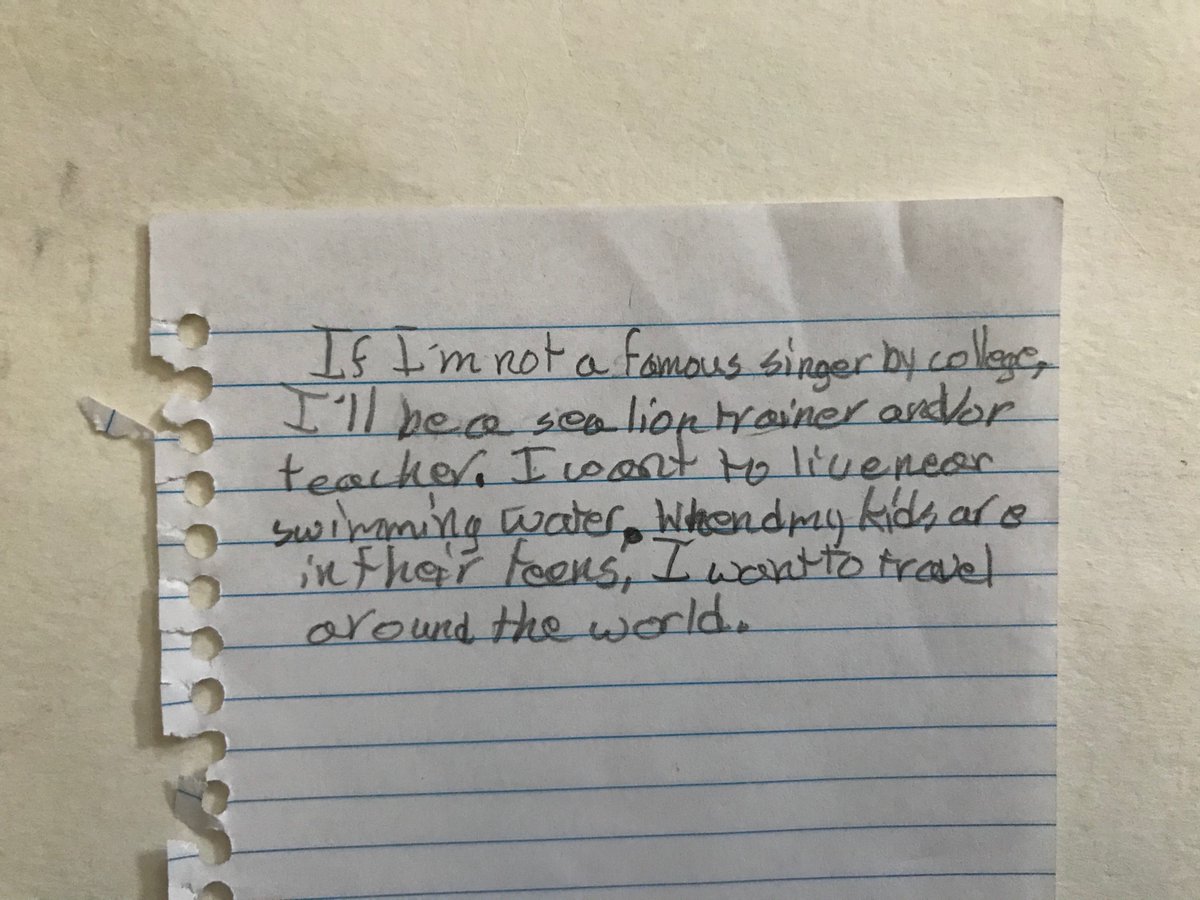 If I'm not a famous singer by college,
I'll be a sea lion trainer and/or
teacher. I want to live near
swimming water. When my kids are
in their teens, I want to travel
around the world.